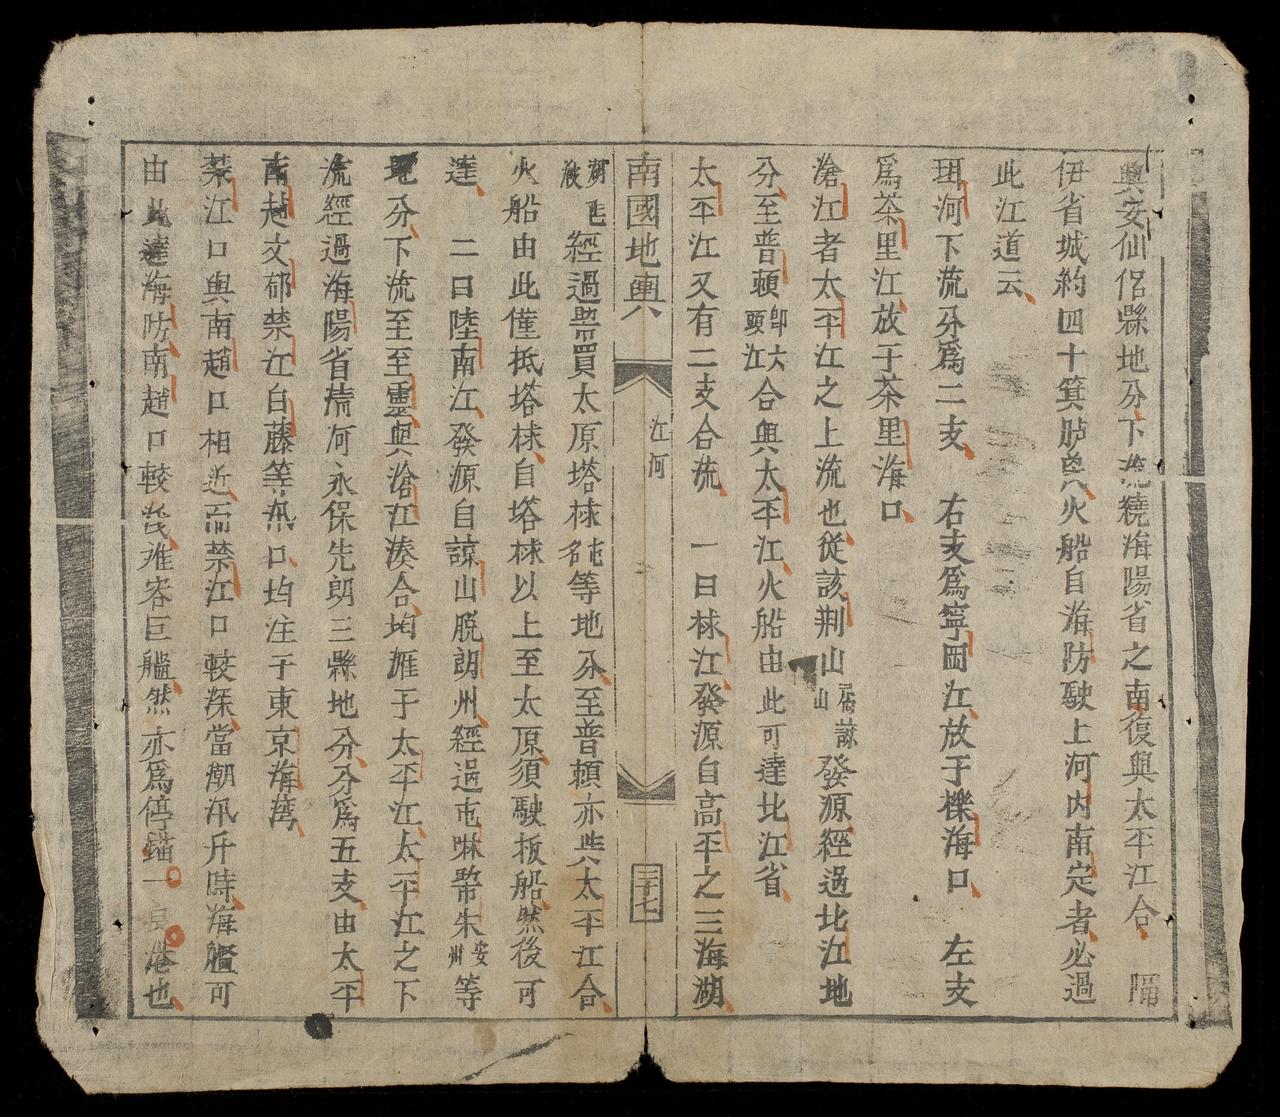 興安仙侶縣地分下流繞海陽省之南復與太平江合 隔
伊省城約四十箕臚與火船自海防駛上河内南定者必過
此江道云
珥河下流分爲二支 右支爲寧岡江放于櫟海口 左支
爲茶里江放于茶里海口
滄江者太平江之上流也從該荆山諒山發源經過北江地
分至普頼即六頭江合與太平江火船由此可達北江省
太平江又有二支合流 一曰梂江發源自高平之三海湖
南國地輿 江河 三十七
經過𢄂買太原塔梂屯名等地分至普頼亦與太平江合
火船由此僅抵塔梂自塔梂以上至太原須駛板船然後可
達 二曰陸南江發源自諒山脱朗州經過屯啉𢄂朱安州等
地分下流至至靈與滄江湊合均雁于太平江太平江之下
流經過海陽省清河永保先朗三縣地分分爲五支由太平
南趙文郁禁江白藤等汛口均注于東京海灣
禁江口與南趙口相近而禁江口較深當潮汛升時海艚可
由此達海防南趙口較淺难容巨艦然亦爲停錨一 港也